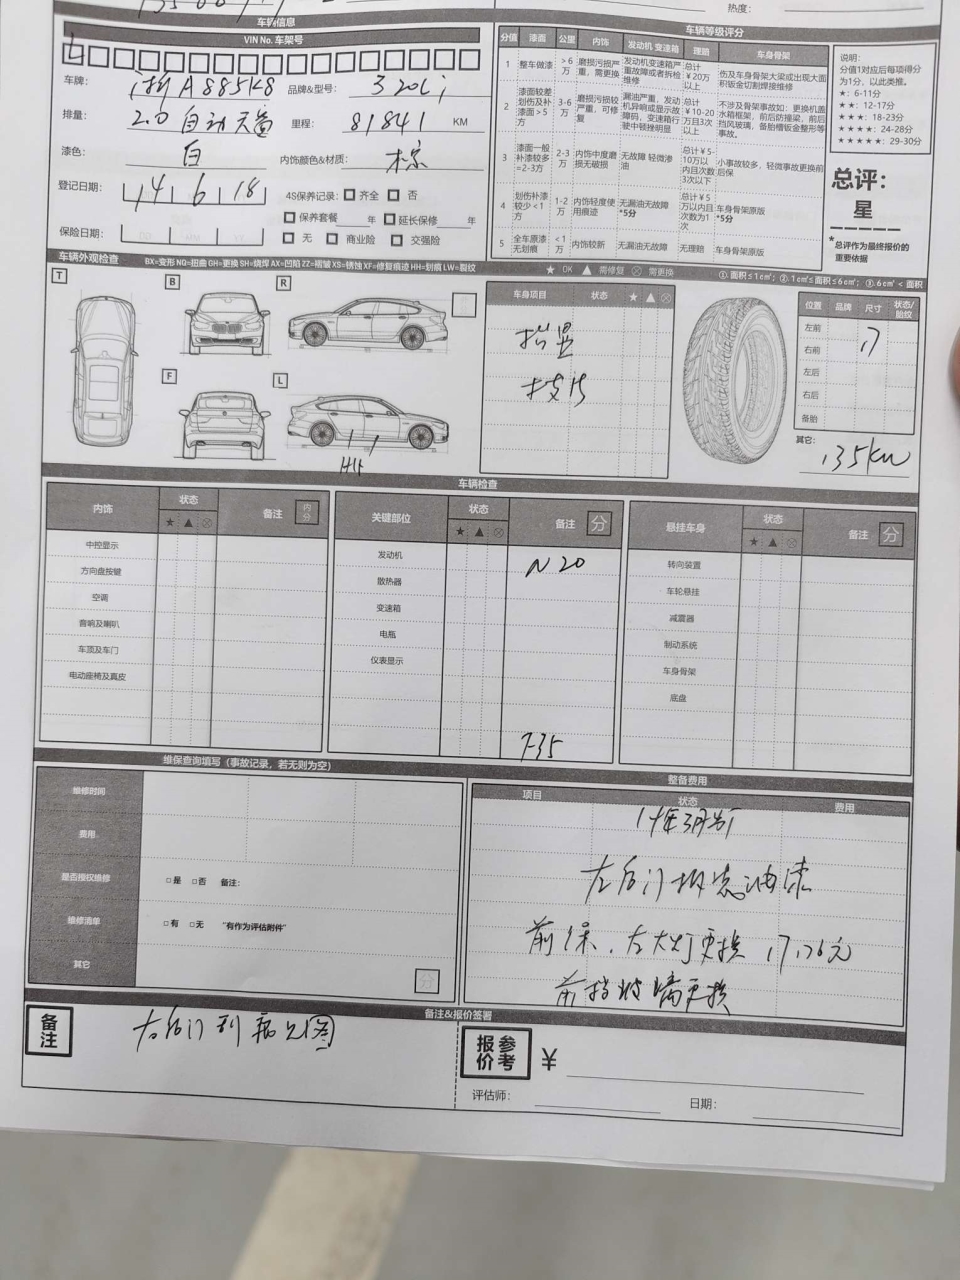 热度：
车辆信息
VIN No. 车架号
车牌：浙A885K8 品牌&型号：320Li
排量：2.0自动天窗 里程：81841 KM
漆色：白 内饰颜色&材质：棕
登记日期：14 6 18 4S保养记录：□齐全 □否
□保养套餐 年 □延长保修 年
保险日期： □无 □商业险 □交强险
车辆等级评分
分值 漆面 公里 内饰 发动机 变速箱 理赔 车身骨架
1 整车做漆 >6万 磨损污损严重，需更换 发动机变速箱严重故障或者拆检维修 总计¥20万以上 伤及车身骨架大梁或出现大面积钣金切割焊接维修
2 漆面较差划伤及补漆面>5方 3-6万 磨损污损较严重，可修复 漏油严重，发动机异响或显示故障码，变速箱行驶中顿挫明显 总计¥10-20万且3次以上 不涉及骨架事故如：更换机盖水箱框架，前后防撞梁，前后挡风玻璃，备胎槽钣金整形等事故。
3 漆面一般补漆较多=2-3方 2-3万 内饰中度磨损无破损 无故障 轻微渗油 总计¥5-10万以内且次数3次以下 小事故较多，轻微事故更换前后保
4 划伤补漆较少<1方 1-2万 内饰轻度使用痕迹 无漏油无故障 *5分 总计¥5万以内且次数为1次 车身骨架原版 *5分
5 全车原漆无划痕 <1万 内饰较新 无漏油无故障 无理赔 车身骨架原版
说明：
分值1对应后每项得分为1分，以此类推。
★：6-11分
★★：12-17分
★★★：18-23分
★★★★：24-28分
★★★★★：29-30分
总评：
星
*总评作为最终报价的重要依据
车辆外观检查 BX=变形 NQ=扭曲 GH=更换 SH=烧焊 AX=凹陷 ZZ=褶皱 XS=锈蚀 XF=修复痕迹 HH=划痕 LW=裂纹
★ OK ▲ 需修复 ⊗ 需更换 ①.面积≤1c㎡；②.1c㎡≤面积≤6c㎡；③.6c㎡<面积
T B R
F L
车身项目 状态 ★ ▲ ⊗
位置 品牌 尺寸 状态/胎纹
左前
右前
17
左后
右后
备胎
其它：135kw
车辆检查
内饰 状态 ★ ▲ ⊗ 备注 内分
中控显示
方向盘按键
空调
音响及喇叭
车顶及车门
电动座椅及真皮
关键部位 状态 ★ ▲ ⊗ 备注 分
发动机 N20
散热器
变速箱
电瓶
仪表显示
F35
悬挂车身 状态 ★ ▲ ⊗ 备注 分
转向装置
车轮悬挂
减震器
制动系统
车身骨架
底盘
维保查询填写（事故记录，若无则为空）
维修时间
费用
是否授权维修 □是 □否 备注：
维修清单 □有 □无 “有作为评估附件”
其它 分
整备费用
项目 状态 费用
左后门板
前保，左大灯更换
前挡玻璃更换
备注&报价签署
备注
参考报价 ¥
评估师： 日期：